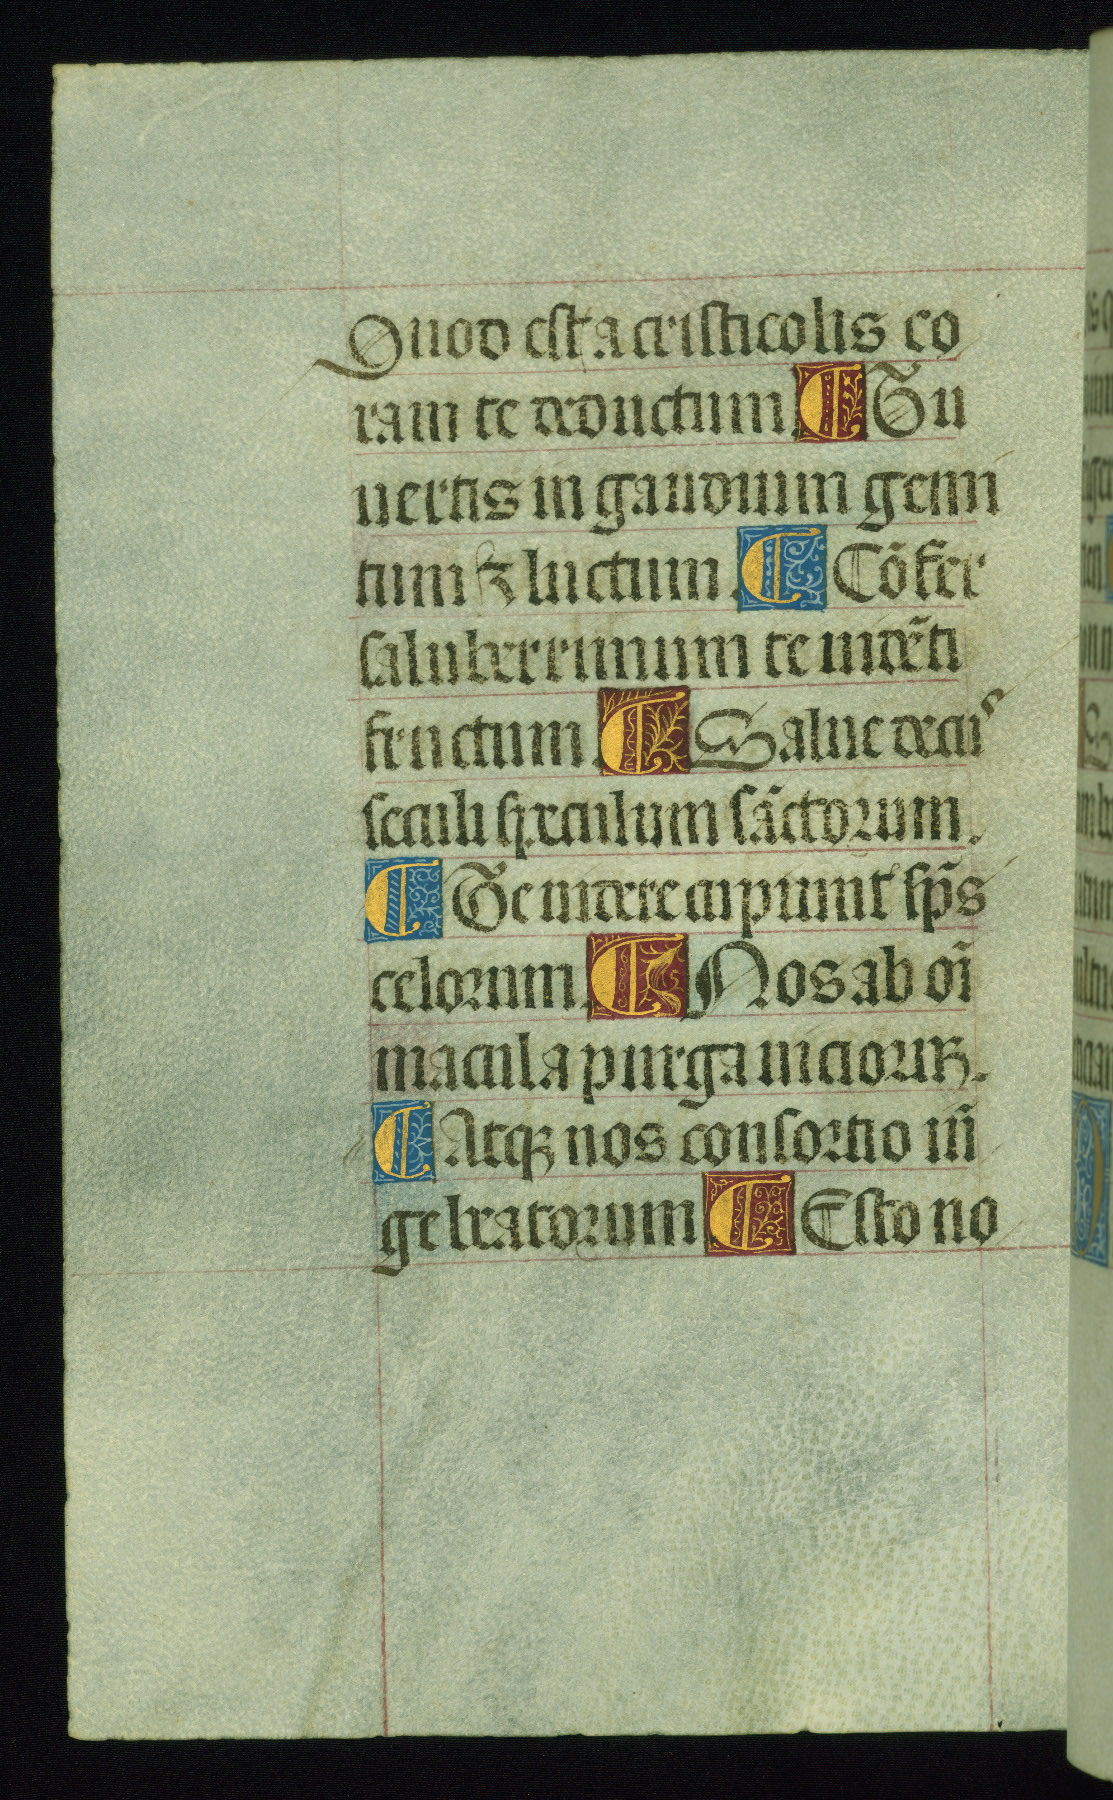 Quod est a cristicolis co
ram te deductum. Tu
uertis in gaudium gemi
tum ⁊ luctum. Cōfer
saluberrimum te uidēti
fructum. Salue decus
seculi speculum sāctorum.
Te uidere cupiunt sp̄s
celorum. Nos ab oī
macula purga uicioruꝝ.
Atqꝫ nos consortio iū
ge beatorum Esto no